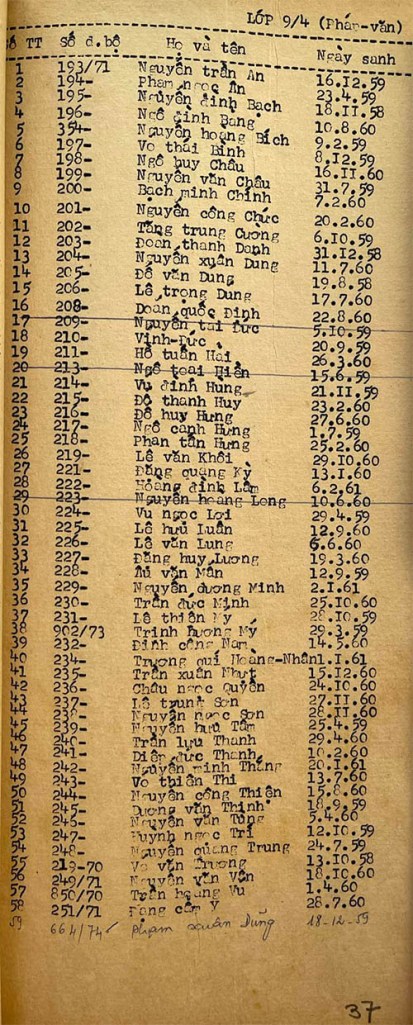 LỚP 9/4 (Pháp-văn)
Số TT Số d.bộ Họ và tên Ngày sanh
1 193/71 Nguyễn trần An 16.12.59
2 194- Phạm ngọc Ân 23.4.59
3 195- Nguyễn đình Bạch 18.11.58
4 196- Ngô đình Bang 10.8.60
5 354- Nguyễn hoàng Bích 9.2.59
6 197- Vo thái Bình 8.12.59
7 198- Ngô huy Châu 16.11.60
8 199- Nguyễn văn Châu 31.7.59
9 200- Bạch minh Chính 7.2.60
10 201- Nguyễn công Chức 20.2.60
11 202- Tăng trung Cương 6.10.59
12 203- Đoan thanh Danh 31.12.58
13 204- Nguyễn xuân Dung 11.7.60
14 205- Đỗ văn Dung 19.8.58
15 206- Lê trọng Dung 17.7.60
16 208- Doan quốc Định 22.8.60
17 209- Nguyễn tai Đức 5.10.59
18 210- Vinh-Đức 20.9.59
19 211- Hồ tuấn Hải 26.3.60
20 213- Ngô toại Hiền 15.6.59
21 214- Vu đình Hung 21.11.59
22 215- Đỗ thanh Huy 23.2.60
23 216- Đỗ huy Hưng 27.6.60
24 217- Ngô cảnh Hưng 1.7.59
25 218- Phan tấn Hưng 25.2.60
26 219- Lê văn Khôi 29.10.60
27 221- Đăng quang Kỳ 13.1.60
28 222- Hoàng đình Lâm 6.2.61
29 223- Nguyễn hoàng Long 10.6.60
30 224- Vu ngọc Lợi 29.4.59
31 225- Lê hưu Luân 12.9.60
32 226- Lê văn Lung 6.6.60
33 227- Đăng huy Lương 19.3.60
34 228- Âu văn Mân 12.9.59
35 229- Nguyễn dương Minh 2.1.61
36 230- Trần đức Minh 25.10.60
37 231- Lê thiên My 28.10.59
38 902/73 Trinh hương Mỹ 29.3.59
39 232- Đinh công Nam 14.5.60
40 234- Trương qui Hoàng-Nhân 1.1.61
41 235- Trần xuân Nhựt 15.12.60
42 236- Châu ngọc Quyền 24.10.60
43 237- Lê trung Sơn 27.11.60
44 238- Nguyễn ngọc Sơn 28.11.60
45 239- Nguyễn hưu Tâm 25.4.59
46 240- Trần lựu Thanh 29.4.60
47 241- Diệp đức Thanh 10.2.60
48 242- Nguyễn minh Thắng 20.1.61
49 243- Vo thiên Thi 13.7.60
50 244- Nguyễn công Thiện 15.8.60
51 245- Dương văn Thịnh 18.9.59
52 246- Nguyễn văn Tùng 5.4.60
53 247- Huynh ngọc Trí 12.10.59
54 248- Nguyễn quang Trung 24.7.59
55 219-70 Vo văn Trương 13.10.58
56 249/71 Nguyễn văn Vân 18.10.60
57 850/70 Trần hoàng Vu 1.4.60
58 251/71 Đặng cẩm Y 28.7.60
59 664/74 phạm xuân Dũng 18-12-59
37